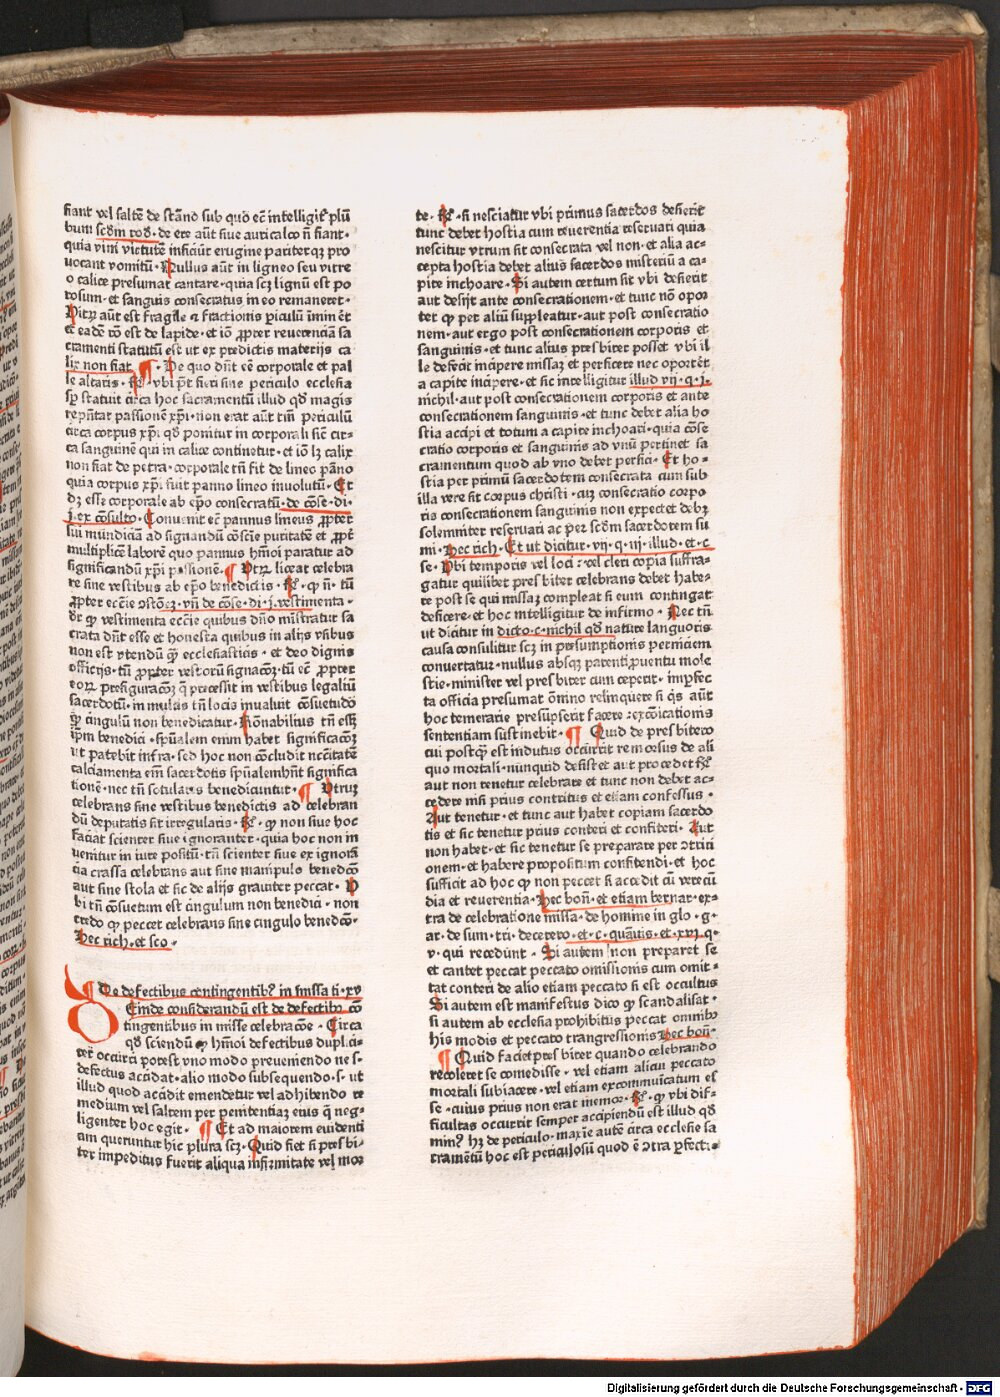 fiant vel saltē de stāno sub quo eē intelligit̄ plū
bum scd̄m rod̄· de ere aūt siue auricalco n̄ fiant·
quia vini virtute inficiūt erugine pariterqꝫ pro
uocant vomitū· Nullus aūt in ligneo seu vitre
o calice presumat cantare· quia scꝫ lignū est po
rosum· et sanguis consecratus in eo remaneret·
Vitrꝫ aūt est fragile ⁊ fractionis piculū iminēt
et eadē rō est de lapide· et iō ꝓpter reuerenciā sa
cramenti statutū est ut ex predictis materijs ca
lix non fiat ¶ · De quo dn̄t eē corporale et pal
le altaris· R̄· vbi pt̄ fieri sine periculo ecclesia
sp̄ statuit circa hoc sacramentū illud qd̄ magis
repn̄tat passionē xp̄i· non erat aūt tm̄ periculū
circa corpus xp̄i qd̄ ponitur in corporali sic̄ cir
ca sanguinē qui in calice continetur· et iō lꝫ calix
non fiat de petra· corporale tn̄ fit de lineo pāno
quia corpus xp̄i fuit panno lineo inuolutū· Et
dꝫ esse corporale ab ep̄o consecratū· de cōse· di·
j· ex cōsulto· Conuenit eē pannus lineus ꝓpter
sui mundiciā ad signandū cōscie puritatē et ꝓpt̄
multiplicē laborē quo pannus hmōi paratur ad
significandū xp̄i passionē· ¶ Vtrꝫ liceat celebra
re sine vestibus ab ep̄o benedictis· R̄· qꝫ n̄· tū
ꝓpter eccie ↄstōeꝫ· vn̄ de cōse· di· j· vestimenta·
dr̄ qꝫ vestimenta eccie quibus dn̄o mīstratur sa
crata dn̄t esse et honesta quibus in alijs vsibus
non est vtendū qꝫ ecclesiasticis· et deo dignis
officijs· tū ꝓpter vestiorū signacōꝫ· tū eē ꝓpter
eorꝫ prefiguracōꝫ q̄ precessit in vestibus legaliū
sacerdotū· in multis tn̄ locis inualuit cōsuetudo
qꝫ cingulū non benedicatur· Rōnabilius tn̄ essꝫ
ip̄m benedici· sp̄ualem enim habet significacōꝫ
ut patebit infra· sed hoc non cōcludit ncc̄itatē
calciamenta em̄ sacerdotis sp̄ualemhn̄t significa
tionē· nec tn̄ sotulares benedicuntur· ¶ Vtruꝫ
celebrans sine vestibus benedictis ad celebran
dū deputatis sit irregularis· R̄· qꝫ non siue hoc
faciat scienter siue ignoranter· quia hoc non in
uenitur in iure positū· tn̄ scienter siue ex ignorā
cia crassa celebrans aut sine manipulo benedcō
aut sine stola et sic de alijs grauiter peccat· V
bi tn̄ cōsuetum est cingulum non benedici· non
credo qꝫ peccet celebrans sine cingulo benedcō·
Hec rich· et sco·
¶ De defectibus contingentibꝫ in missa ti· xv
Deinde considerandū est de defectibꝫ cō
tingentibus in misse celebracōe· Circa
qd̄ sciendū qꝫ hmōi defectibus duplici
ter occurri potest vno modo preueniendo ne s·
defectus accidat· alio modo subsequendo· s· ut
illud quod accidit emendetur vel adhibendo re
medium vel saltem per penitentiaꝫ eius q̄ neg
ligenter hic egit· ¶ Et ad maiorem euidenti
am queruntur hic plura scꝫ· Quid fiet si presbi
ter impeditus fuerit aliqua infirmitate vel mor
te· R̄· si nesciatur vbi primus sacerdos defierit
tunc debet hostia cum reuerentia reseruari quia
nescitur vtrum sit consecrata vel non· et alia ac
cepta hostia debet alius sacerdos misteriū a ca
pite inchoare· Si autem certum sit vbi defierit
aut desijt ante consecrationem· et tunc nō opor
tet qꝫ per aliū suppleatur· aut post consecratio
nem· aut ergo post consecrationem corporis et
sanguinis· et tunc alius presbiter posset vbi il
le defecit incipere missaꝫ et perficere nec oportēt
a capite incipere· et sic intelligitur illud vij· q· j·
nichil· aut post consecrationem corporis et ante
consecrationem sanguinis· et tunc debet alia ho
stia accipi et totum a capite inchoari· quia cōse
cratio corporis et sanguinis ad vnū pertinet sa
cramentum quod ab vno debet perfici· Et ho
stia per primū sacerdotem consecrata cum sub
illa vere sit corpus christi· cuꝫ consecratio corpo
ris consecrationem sanguinis non expectet debꝫ
solemniter reseruari ac per scd̄m sacerdotem su
mi· Hec rich· Et ut dicitur· vij· q· iij· illud· et· c·
se· Vbi temporis vel loci· vel cleri copia suffra
gatur quilibet presbiter celebrans debet habe
re post se qui missaꝫ compleat si eum contingat
deficere· et hoc intelligitur de infirmo· Nec tn̄
ut dicitur in dicto· c· nichil qd̄ nature languoris
causa consulitur scꝫ in presumptionis perniciem
conuertatur· nullus absqꝫ patenti ꝓuentu mole
stie· minister vel presbiter cum ceperit· imperfec
ta officia presumat ōnino relinquere si q̄s aūt
hoc temerarie presūpserit facere ꝛexcōicationis
sententiam sustinebit· ¶ Quid de presbitero
cui postqꝫ est indutus occurrit remorsus de ali
quo mortali· nunquid desistet aut procedet R̄·
aut non tenetur celebrare et tunc non debet ac
cedere nisi prius contritus et etiam confessus·
Aut tenetur· et tunc aut habet copiam sacerdo
tis et sic tenetur prius conteri et confiteri· Aut
non habet· et sic tenetur se preparare per ↄtrici
onem· et habere propositum confitendi· et hoc
sufficit ad hoc qꝫ non peccet si accedit cū verecū
dia et reuerentia· Hec bon̄· et etiam bernar· ex
tra de celebratione missa· de homine in glo· g·
ar· de sum· tri· decetero· et· c· quātis· et· xvi· q·
v· qui recedunt· Si autem non preparet se
et cantet peccat peccato omissionis cum omit
tat conteri de alio etiam peccato si est occultus
Si autem est manifestus dico qꝫ scandalisat·
si autem ab ecclesia prohibitus peccat omnibꝫ
his modis et peccato trangressionis Hec bon̄·
¶ Quid faciet presbiter quando celebrando
recoleret se comedisse· vel etiam alicui peccato
mortali subiacere· vel etiam excommuīcatum es
se· cuius prius non erat memor· R̄· qꝫ vbi dif
ficultas occurrit semper accipiendū est illud qd̄
minꝰ hꝫ de periculo· maxīe autē circa ecclesie sa
cramētū hoc est periculosū quod ē ↄtra ꝑfecti·
Digitalisierung gefördert durch die Deutsche Forschungsgemeinschaft - DFG